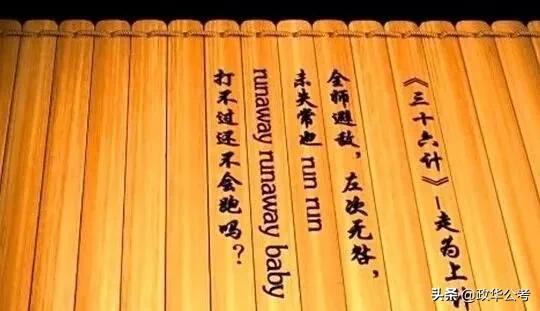 《三十六计》–走为上计
全师避敌，左次无咎，
未失常也 run run
runaway runaway baby
打不过还不会跑吗？
头条 @政华公考